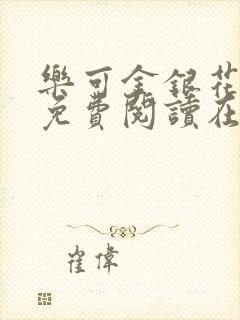 樂可金銀花
免費閱讀在
崔偉